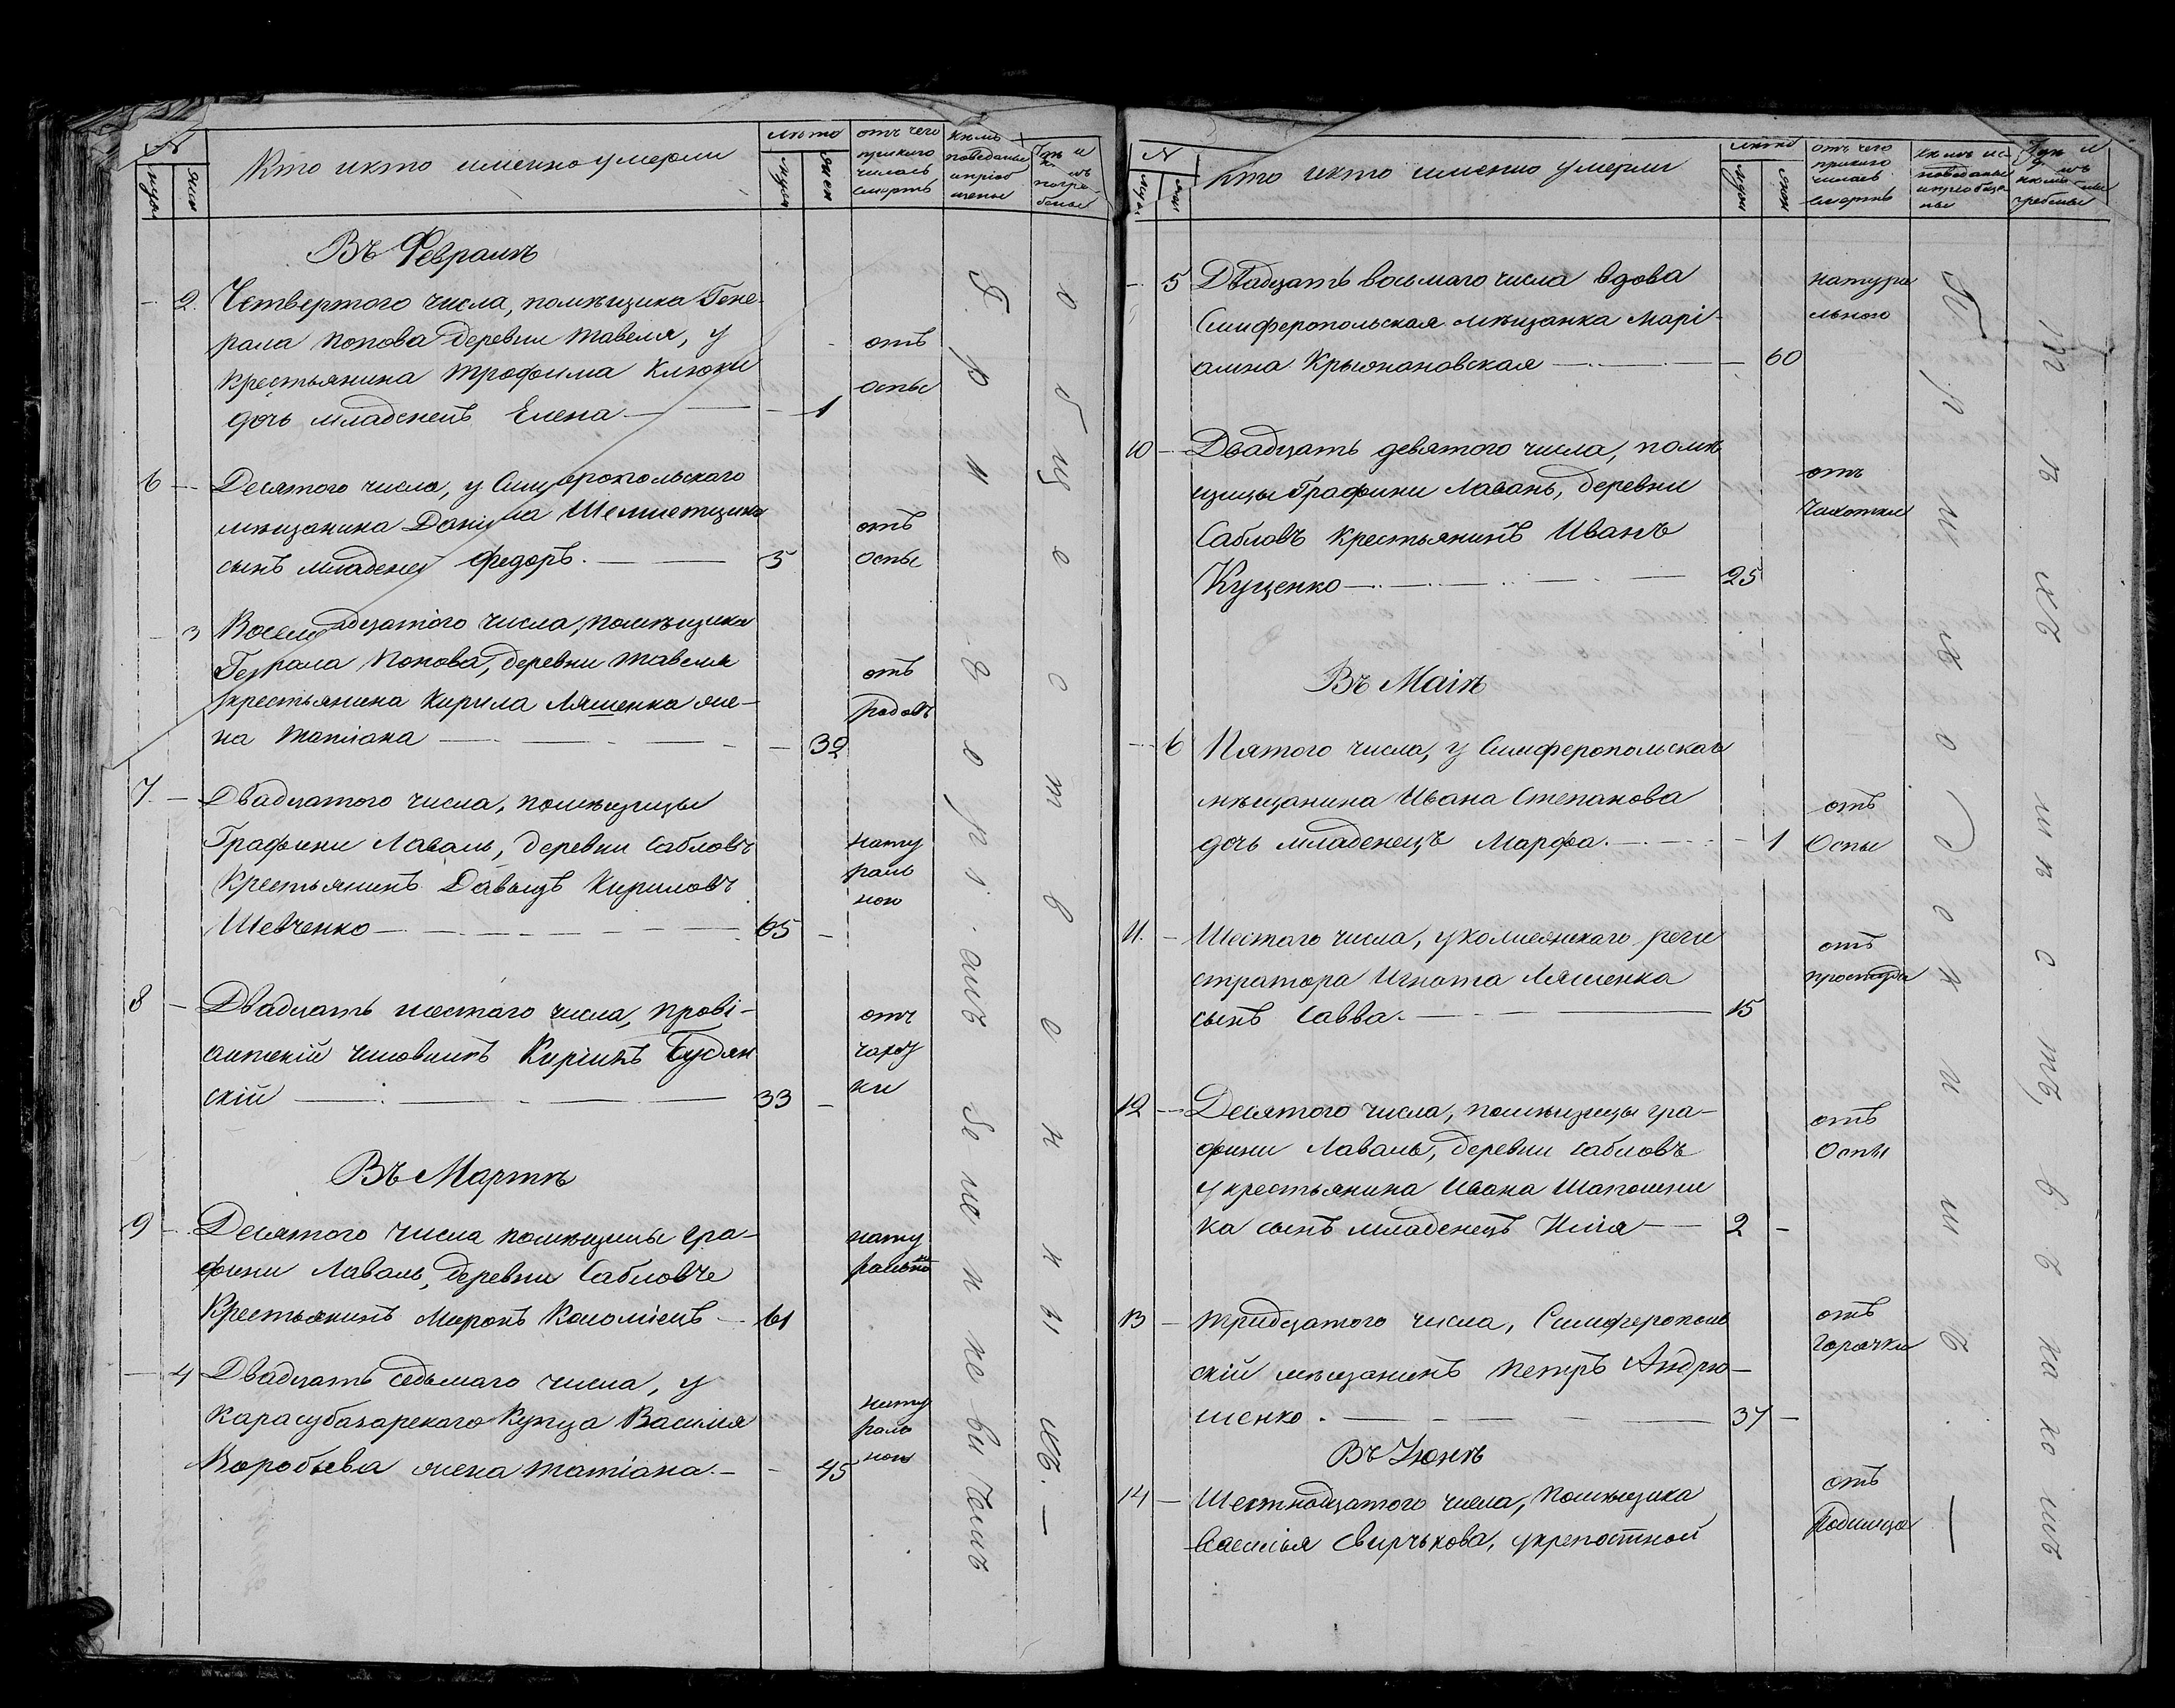 №
муж.
жен.
Кто и кто именно умерли
Лѣто
муж.
жен.
отъ чего
приключилась
смерть
Кѣмъ
исповѣданы
и пріоб
щены
Гдѣ и
кѣмъ
погре-
бены
Въ Февралѣ
- 2. Четвертого числа, помѣщика Гене-
рала Попова деревни Тавеля, у
крестьянина Трофима Клюки
дочь младенецъ Елена - 1
отъ
оспы
6 - Десятого числа, у Симферопольского
мѣщанина Даніила
сынъ младенец Федоръ. 5
отъ
оспы
- 3 помѣщика
Генерала Попова, деревни Тавеля
крестьянина Кирила Ляшенка же-
на Татіана - 32
отъ
родовъ
7. - Двадцатого числа, помѣщицы
Графини Лаваль, деревни Сабловъ
Крестьянинъ Давыдъ Кириловъ
Шевченко 65 -
нату
раль
ною
8 - Двадцать шестого числа, прові-
антскій чиновникъ Будян
скій 33 -
отъ
чахот
ки
Въ Мартѣ
9 - Десятого числа помѣщицы гра-
фини Лаваль, деревни Сабловъ
Крестьянинъ Миронъ Коломіецъ 61
нату
рально
- 4 Двадцать седьмаго числа, у
Карасубазарского Купца Василія
Воробьева жена Татіана. - 45
нату
раль
ною
№
муж.
жен.
Кто и кто именно умерли
Лѣто
муж.
жен.
отъ чего
приклю
чилась
смерть
Кѣмъ ис-
повѣданы
и пріобще
ны
Гдѣ и
кѣмъ по-
гребены
- 5 Двадцать восьмаго числа вдова
Симферопольская мѣщанка Марі-
анна Крыжановская - 60
натура
льного
10 - Двадцать девятого числа, помѣ
щицы Графини Лаваль, деревни
Сабловъ крестьянинъ Иванъ
Куценко 25
отъ
Чахотки
Въ Маіѣ
- 6 Пятого числа, у Симферопольскаго
мѣщанина Ивана Степанова
дочь младенецъ Марфа. - 1
отъ
Оспы
11. - Шестого числа, у колежскаго реги
стратора Игната Ляшенка
сынъ Савва. 15
отъ
простуды
12 - Десятого числа, помѣщицы гра-
фини Лаваль, деревни Сабловъ
у крестьянина Ивана Шапошни
ка сынъ младенецъ Илія 2 -
отъ
Оспы
13 - Тридцатого числа, Симферополь
скій мѣщанинъ Петръ Андрю-
шенко. 37 -
отъ
Горячки
Въ Іюнѣ
14 - Шестнадцатого числа, помѣщика
Василія Свирчкова, у крепостной
отъ